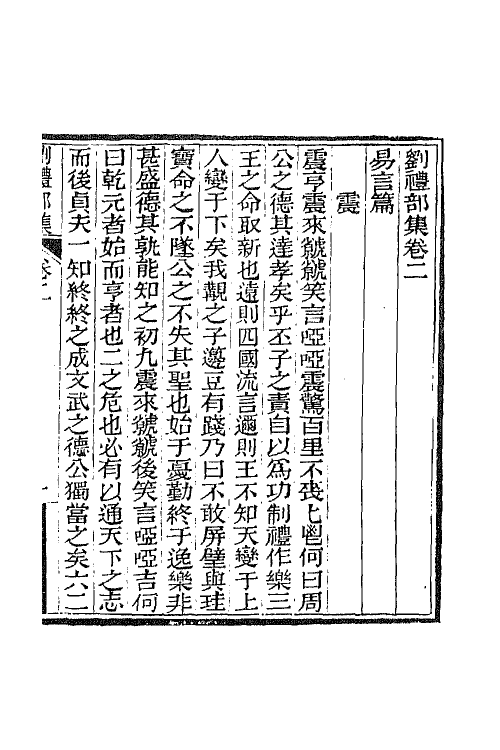 劉禮部集卷二
易言篇
震
震亨震來虩虩笑言啞啞震驚百里不喪匕鬯何曰周
公之德其達孝矣乎丕子之責自以爲功制禮作樂三
王之命取新也遠則四國流言邇則王不知天變于上
人變于下矣我觀之子籩豆有踐乃曰不敢屏璧與珪
寶命之不墜公之不失其聖也始于憂勤終于逸樂非
甚盛德其孰能知之初九震來虩虩後笑言啞啞吉何
曰乾元者始而亨者也二之危也必有以通天下之志
而後貞夫一知終終之成文武之德公獨當之矣六二
劉禮部集 卷二 一